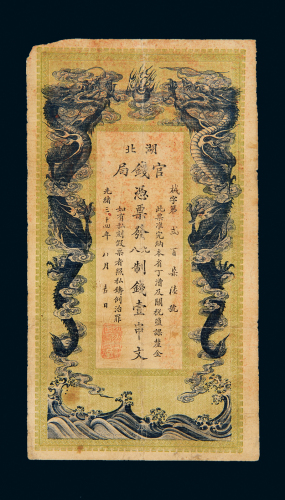 湖北
官錢局
械字第弍百柒陸號
此票准完納本省丁漕及關稅鹽課釐金
憑票發九八制錢壹串文
如有私刻假票者照私鑄例治罪
光緒三十四年八月吉日